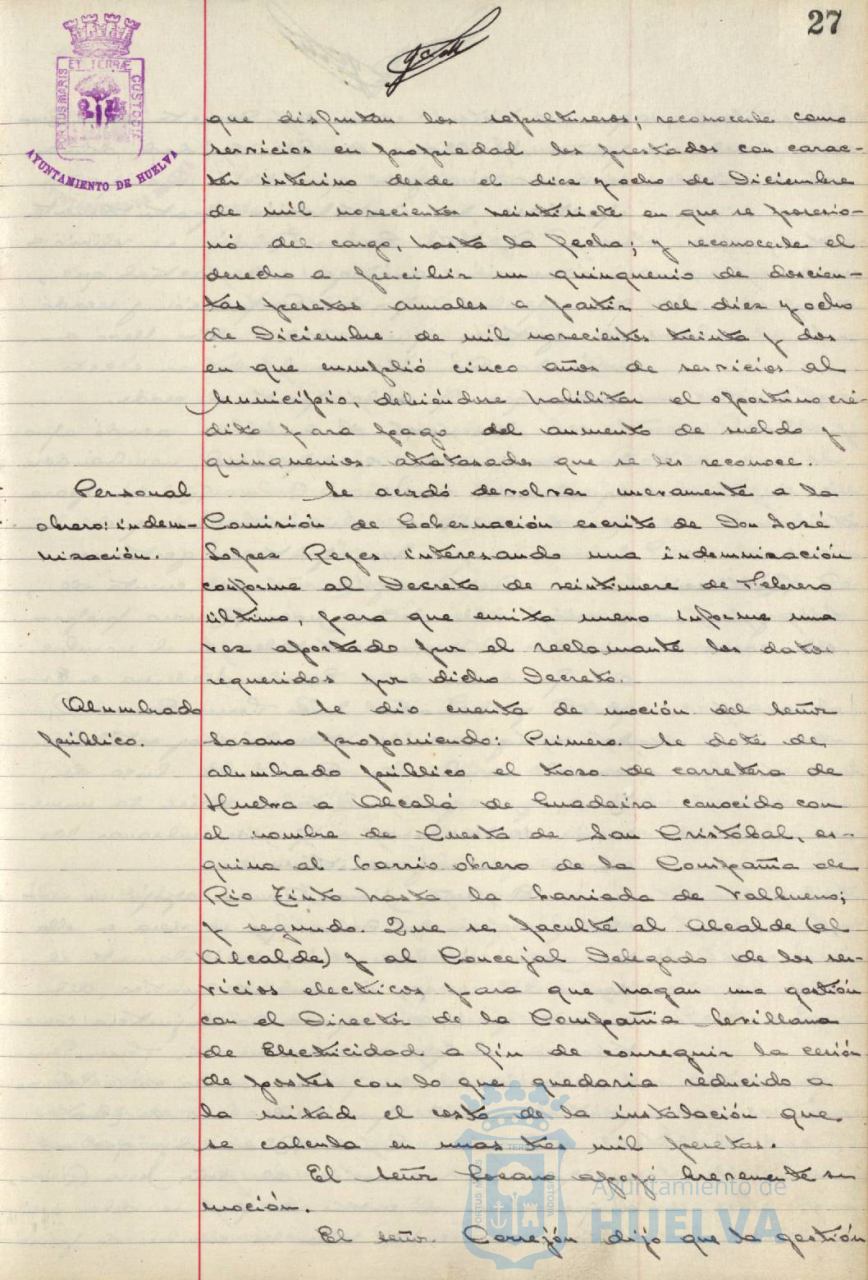 27
PORTUS MARIS ET TERRÆ CUSTODIA
AYUNTAMIENTO DE HUELVA
que disfrutan los sepultureros; reconocerle como
servicios en propiedad los prestados con carac-
ter interino desde el diez y ocho de Diciembre
de mil novecientos veintisiete en que se posesio-
nó del cargo, hasta la fecha; y reconocerle el
derecho a percibir un quinquenio de doscien-
tas pesetas anuales a partir del diez y ocho
de Diciembre de mil novecientos treinta y dos
en que cumplió cinco años de servicios al
Municipio, debiéndose habilitar el oportuno cré-
dito para pago del aumento de sueldo y
quinquenios atrasados que se les reconoce.
Personal
obrero: indem-
nización.
Se acordó devolver nuevamente a la
Comisión de Gobernación escrito de Don José
Lopez Reyes interesando una indemnización
conforme al Decreto de veintinueve de Febrero
último, para que emita nuevo informe una
vez aportado por el reclamante los datos
requeridos por dicho Decreto.
Alumbrado
público.
Se dio cuenta de moción del Señor
Lozano proponiendo: Primero. Se dote de
alumbrado público el trozo de carretera de
Huelva a Alcalá de Guadaira conocido con
el nombre de Cuesta de San Cristobal, es-
quina al barrio obrero de la Compañia de
Rio Tinto hasta la barriada de Valbueno;
y segundo. Que se faculte al Alcalde (al
Alcalde) y al Concejal Delegado de los ser-
vicios electricos para que hagan una gestión
con el Director de la Compañia Sevillana
de Electricidad a fin de conseguir la cesión
de postes con lo que quedaria reducido a
la mitad el costo de la instalación que
se calcula en unas tres mil pesetas.
El Señor Lozano apoyó brevemente su
moción.
El señor Cerrejón dijo que la gestión
Ayuntamiento de
HUELVA